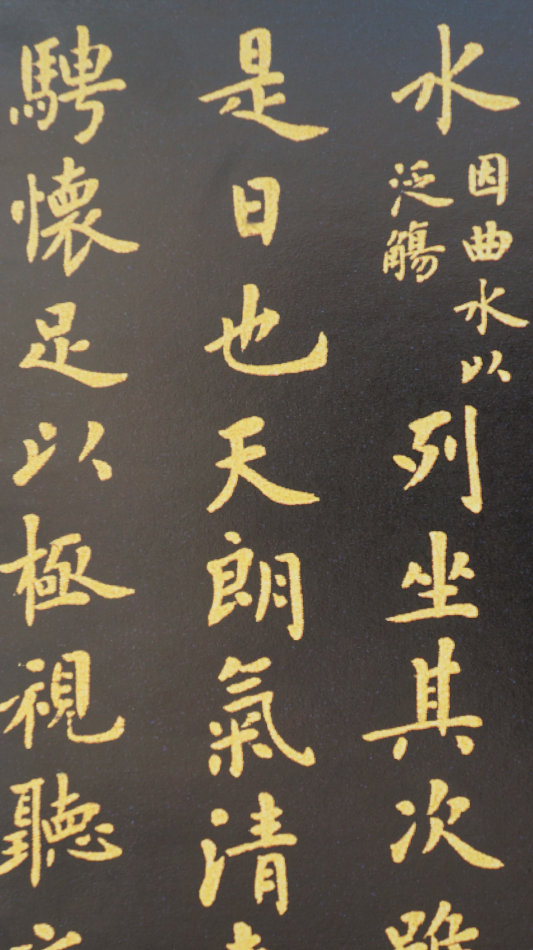 水
因曲水以
泛觴
列坐其次
是日也天朗氣清
騁懷足以極視聽